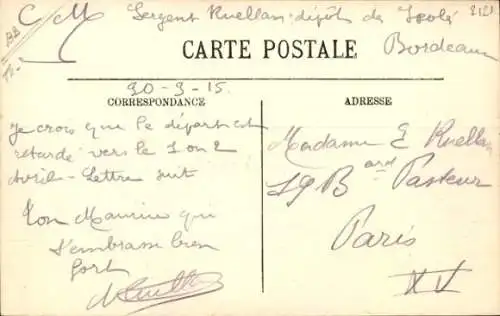 C M Sergent Ruellan dépôts de Isolés 2121
BB
CARTE POSTALE
Bordeaux
30-3-15
CORRESPONDANCE
ADRESSE
Je crois que le départ est
retardé vers le 1 ou 2
Avril - Lettre suit
Ton Maurice qui
t'embrasse bien
fort
MRuellan
Madame E Ruellan
59 Bard Pasteur
Paris
XV